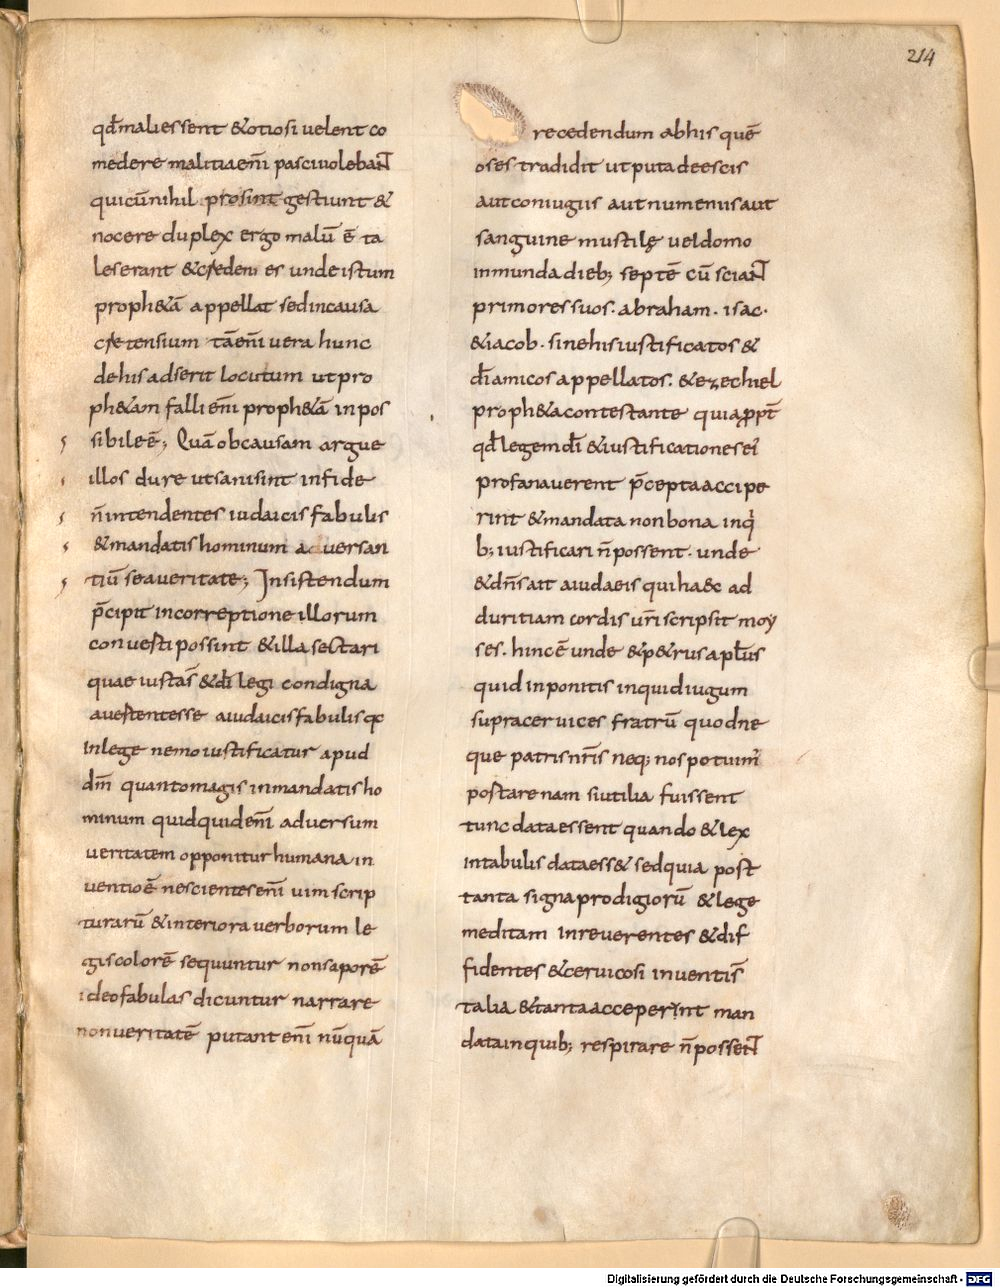 214
qđ mali essent & otiosi uelent co
medere malitia enī pasci uolebaNT
qui cū nihil prosint gestiunt &
nocere duplex ergo malū ē ta
les erant & credeni es unde istum
proph&ā appellat sed in causa
cretensium tā enī uera hunc
de his adserit locutum ut pro
ph&am falli enī proph&ā inpos
sibile ē; Quā ob causam argue
illos dure ut sani sint in fide
n̄ intendentes iudaicis fabulis
& mandatis hominum aduersan
tiū se a ueritate; Insistendum
p̄cipit in correptione illorum
conuesti possint & illa sectari
quae iusta s̄ & dī legi condigna
auestentes se a iudaicis fabulis q̄
in lege nemo iustificatur apud
dm̄ quanto magis in mandatis ho
minum quidquid enī aduersum
ueritatem opponitur humana in
uentio ē nescientes enī uim scrip
turarū & interiora uerborum le
gis colorē sequuntur non saporē
ideo fabulas dicuntur narrare
non ueritatē putant enī nūquā
recedendum ab his quē
oses tradidit ut puta de escis
aut coniugiis aut numenus aut
sanguine mustilę uel domo
inmunda dieb; septē cū sciaNT
primores suos· abraham· isac·
& iacob· sine his iustificatos &
dī amicos appellatos· & ezechiel
proph&a contestante quia ꝓpt̄
qđ legem dī & iustificationes ei
profanauerent p̄cepta accipe
rint & mandata non bona in q'
b; iustificari n̄ possent· unde
& dn̄s ait a iudaeis qui haec ad
duritiam cordis ur̄i scripsit moy
ses· hinc ē unde & p&rus apłus
quid inponitis inquid iugum
supra ceruices fratrū quod ne
que patris nr̄is neq; nos potuim'
postare nam si utilia fuissent
tunc data essent quando & lex
in tabulis data ess& sed quia post
tanta signa prodigiorū & lege
meditam inreuerentes & dif
fidentes & ceruicosi inuenti s̄
talia & tanta acceperint man
data in quib; respirare n̄ posseNT
Digitalisierung gefördert durch die Deutsche Forschungsgemeinschaft - DFG